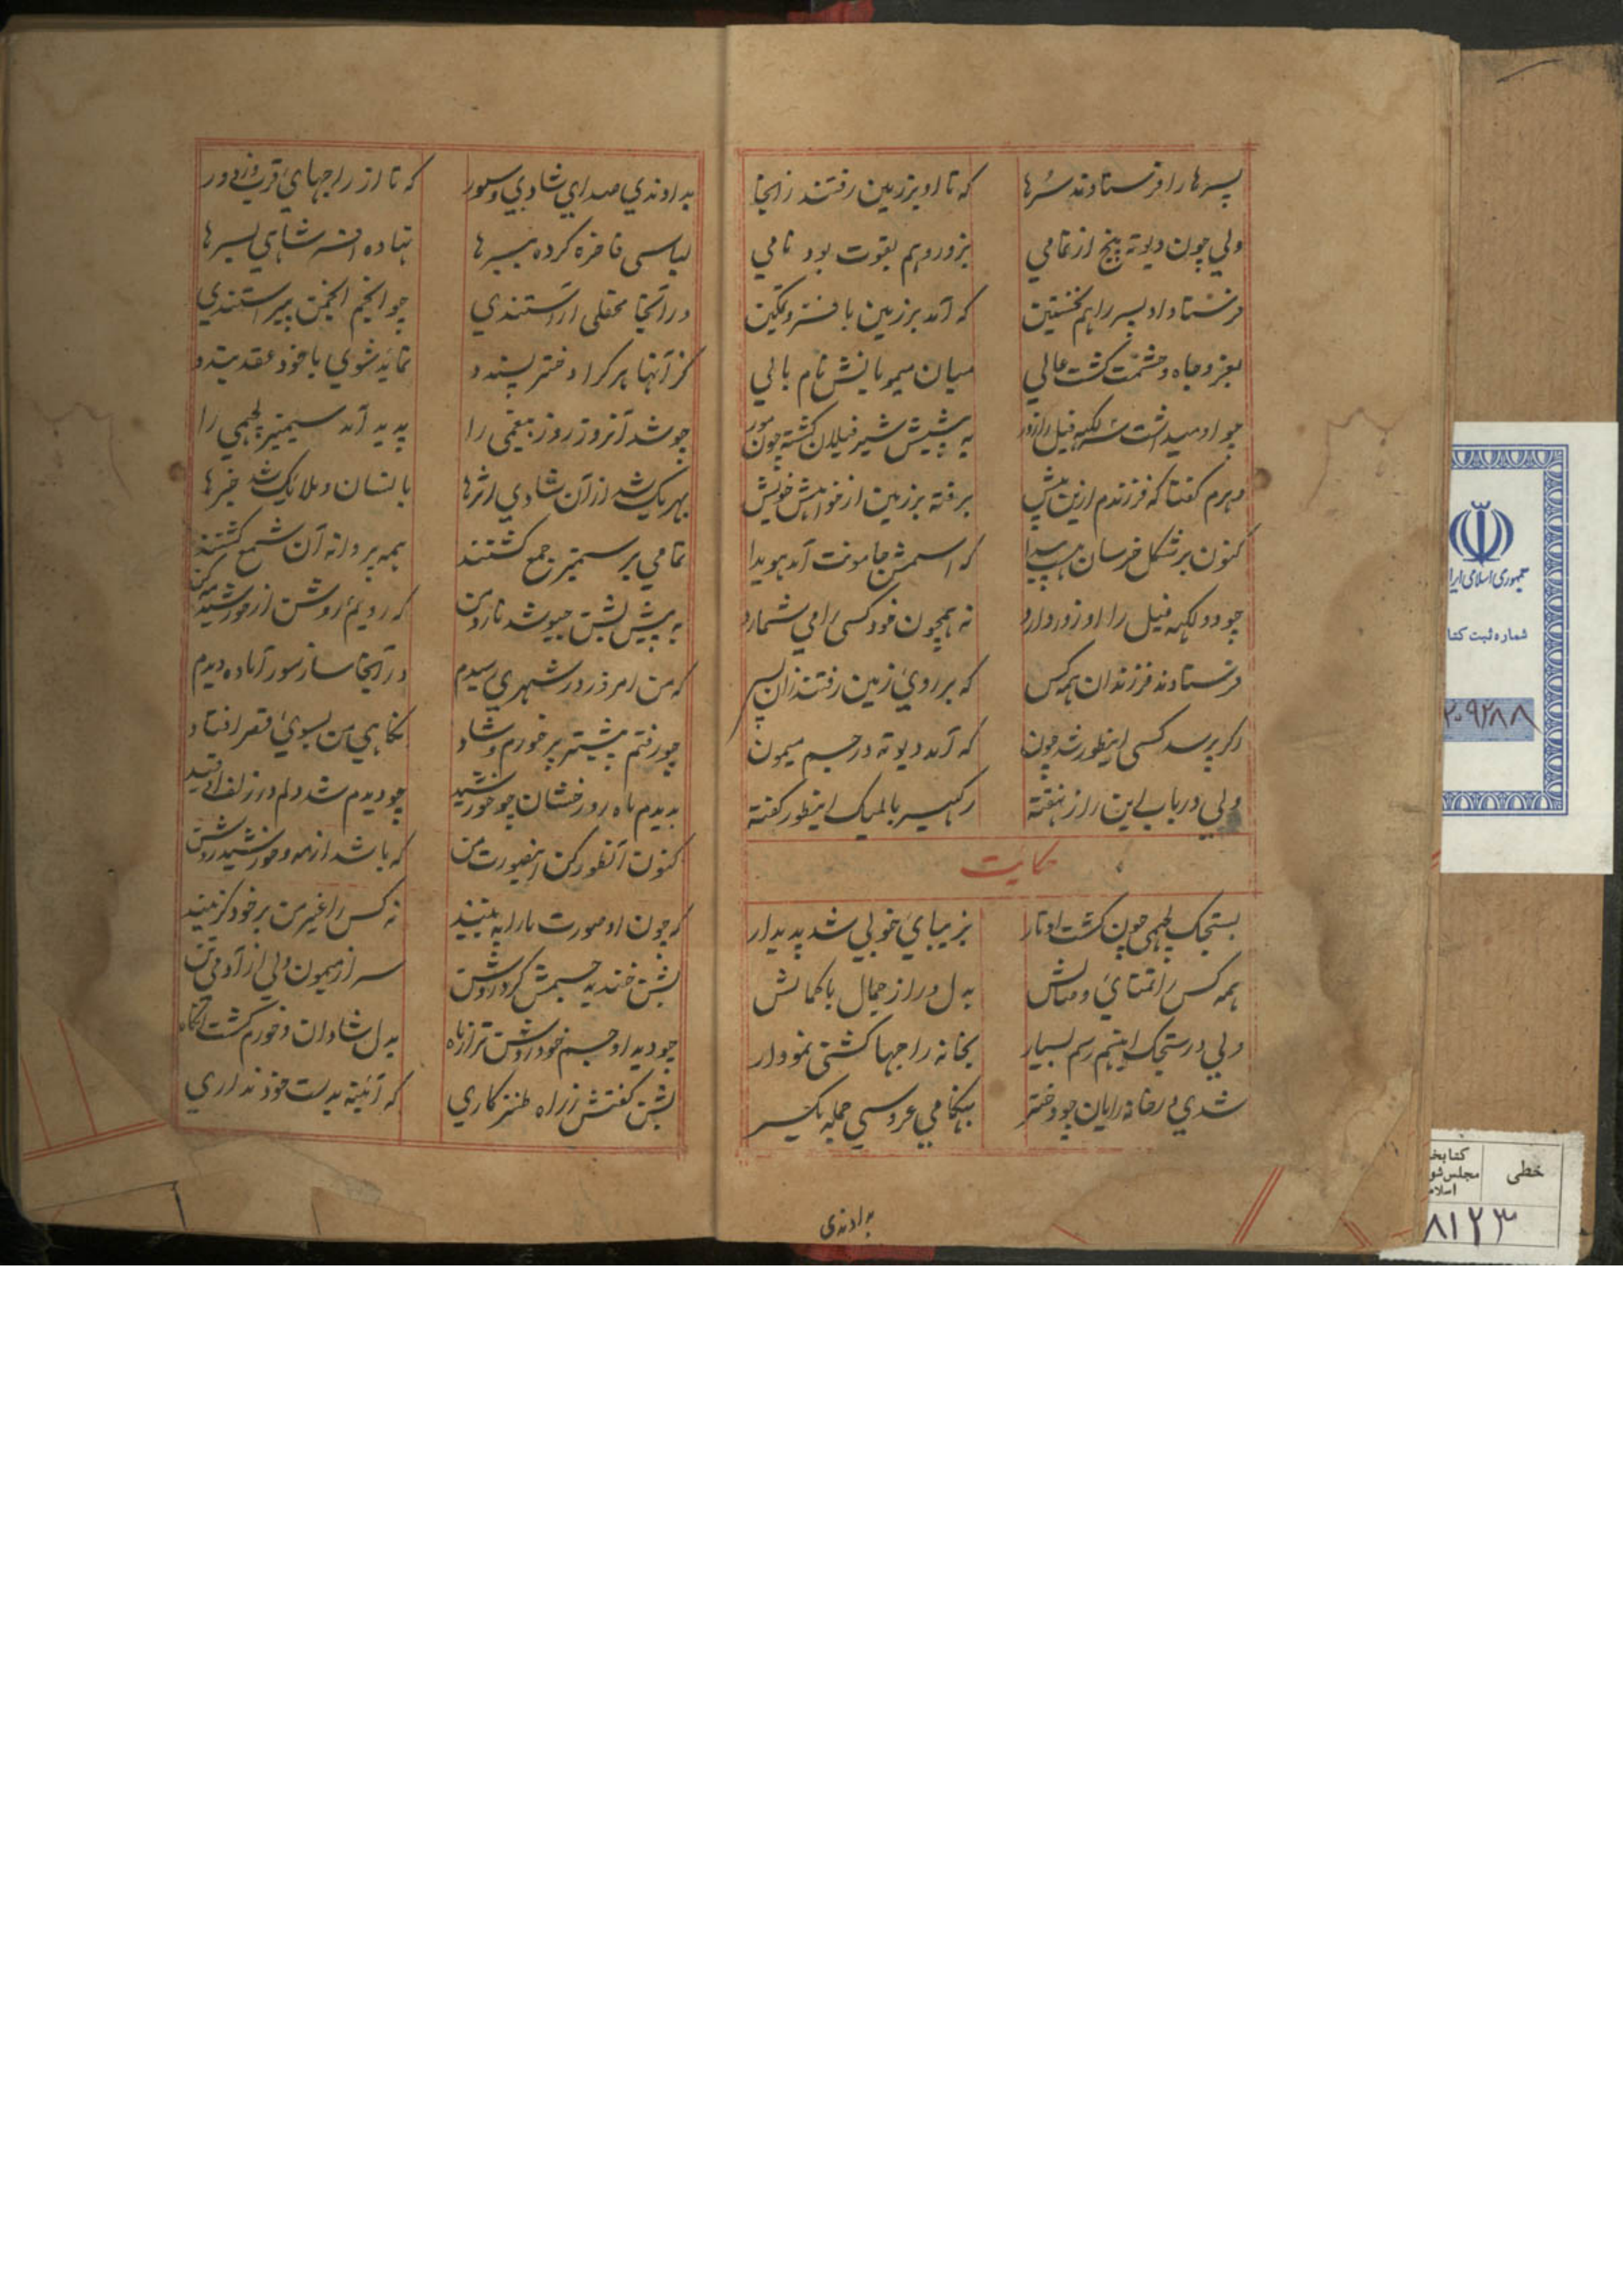 پسرها را فرستادند سرها که تا او بر زمین رفتند زانجا
ولی چون دیوته پنج از تمامی بزور و هم بقوت بود نامی
فرستاد او پسر را هم نخستین که آمد بر زمین با فر و تمکین
بعز و جاه و حشمت گشت عالی میان میمونانش نام بالی
چو او میداشت لکهه فیل را زور به پیشش شیر فیلان گشته چون مور
دبرم گفتا که فرزندم ازین پیش برفته بر زمین از خواهش خویش
کنون بر شکل خرسان هست پیدا که اسمش جامونت آمد هویدا
چو دو لکهه فیل را او زور دارد نه همچون خود کسی را می شمارد
فرستادند فرزندان همه کس که بر روی زمین رفتند زان پس
اگر پرسد کسی اینطور شد چون که آمد دیوته در جسم میمون
ولی در باب این راز نهفته رکهیسر بالمیک اینطور گفته
حکایت
بستجک لچهمی چون گشت اوتار بزیبای خوبی شد پدیدار
همه کس را تمنای وصالش بدل در از جمال با کمالش
ولی در ستجک اینهم رسم بسیار بخانه راجها گشتی نمودار
شدی در خانه رایان چو دختر بهنگامی عروسی جمله یکسر
بدادندی
بدادندی صدای شادی و سور که تا از راجهای قرب و از دور
لباسی فاخره کرده ببرها نهاده افسر شاهی بسرها
در آنجا محفلی آراستندی چو انجم انجمن پیراستندی
کز آنها هر کرا دختر پسندد نماید شوی با خود عقد بندد
چو شد آنروز روز بیغمی را پدید آمد سیمبر لچهمی را
بهر یک شد از آن شادی اثرها بانسان و ملایک شد خبرها
تمامی بر سیمبر جمع گشتند همه پروانه آن شمع گشتند
به پیش بشن چون شد نارد من که رویم روشن از خورشید مه کن
که من امروز در شهری رسیدم در آنجا ساز سور آماده دیدم
چو رفتم پیشتر پر خورم و شاد نگاهی من بسوی قصر افتاد
بدیدم ماه رو رخشان چو خورشید چو دیدم شد دلم در زلف او قید
کنون آنطور کن اینصورت من که باشد از مه و خورشید روشن
که چون او صورت ما را به بیند نه کس را غیر من بر خود گزیند
بشن خندید جسمش کرد روشن سر از میمون ولی از آدمی تن
چو دید او جسم خود روشن تر از ماه بدل شادان و خورم گشت آنگاه
بشن گفتش ز راه طنز کاری که آئینه بدست خود نداری
جمهوری اسلامی ایرا
شماره ثبت کتا
۲۰۹۲۸۸
خطی
کتابخا
مجلس شو
اسلام
۸۱۲۳